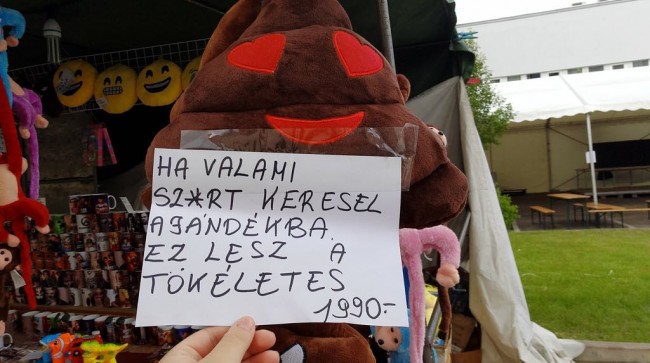 HA VALAMI
SZ*RT KERESEL
AJÁNDÉKBA,
EZ LESZ A
TÖKÉLETES
1990.-